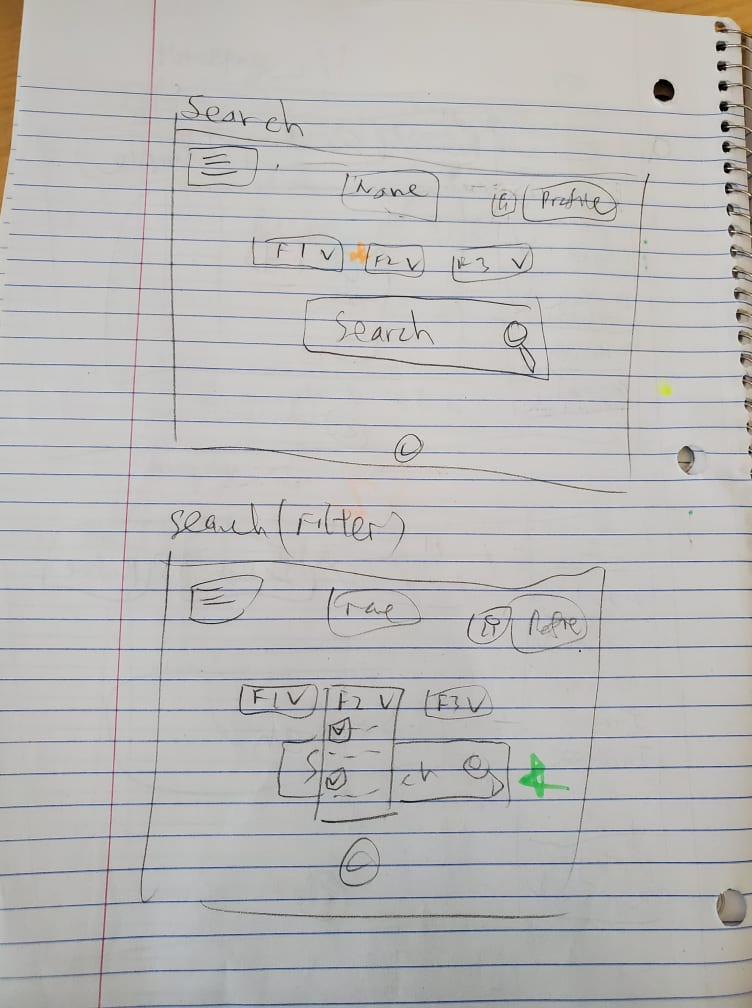 Search
Name
Profile
F1 V F2 V F3 V
Search
search (Filter)
F1 V F2 V F3 V
S ch